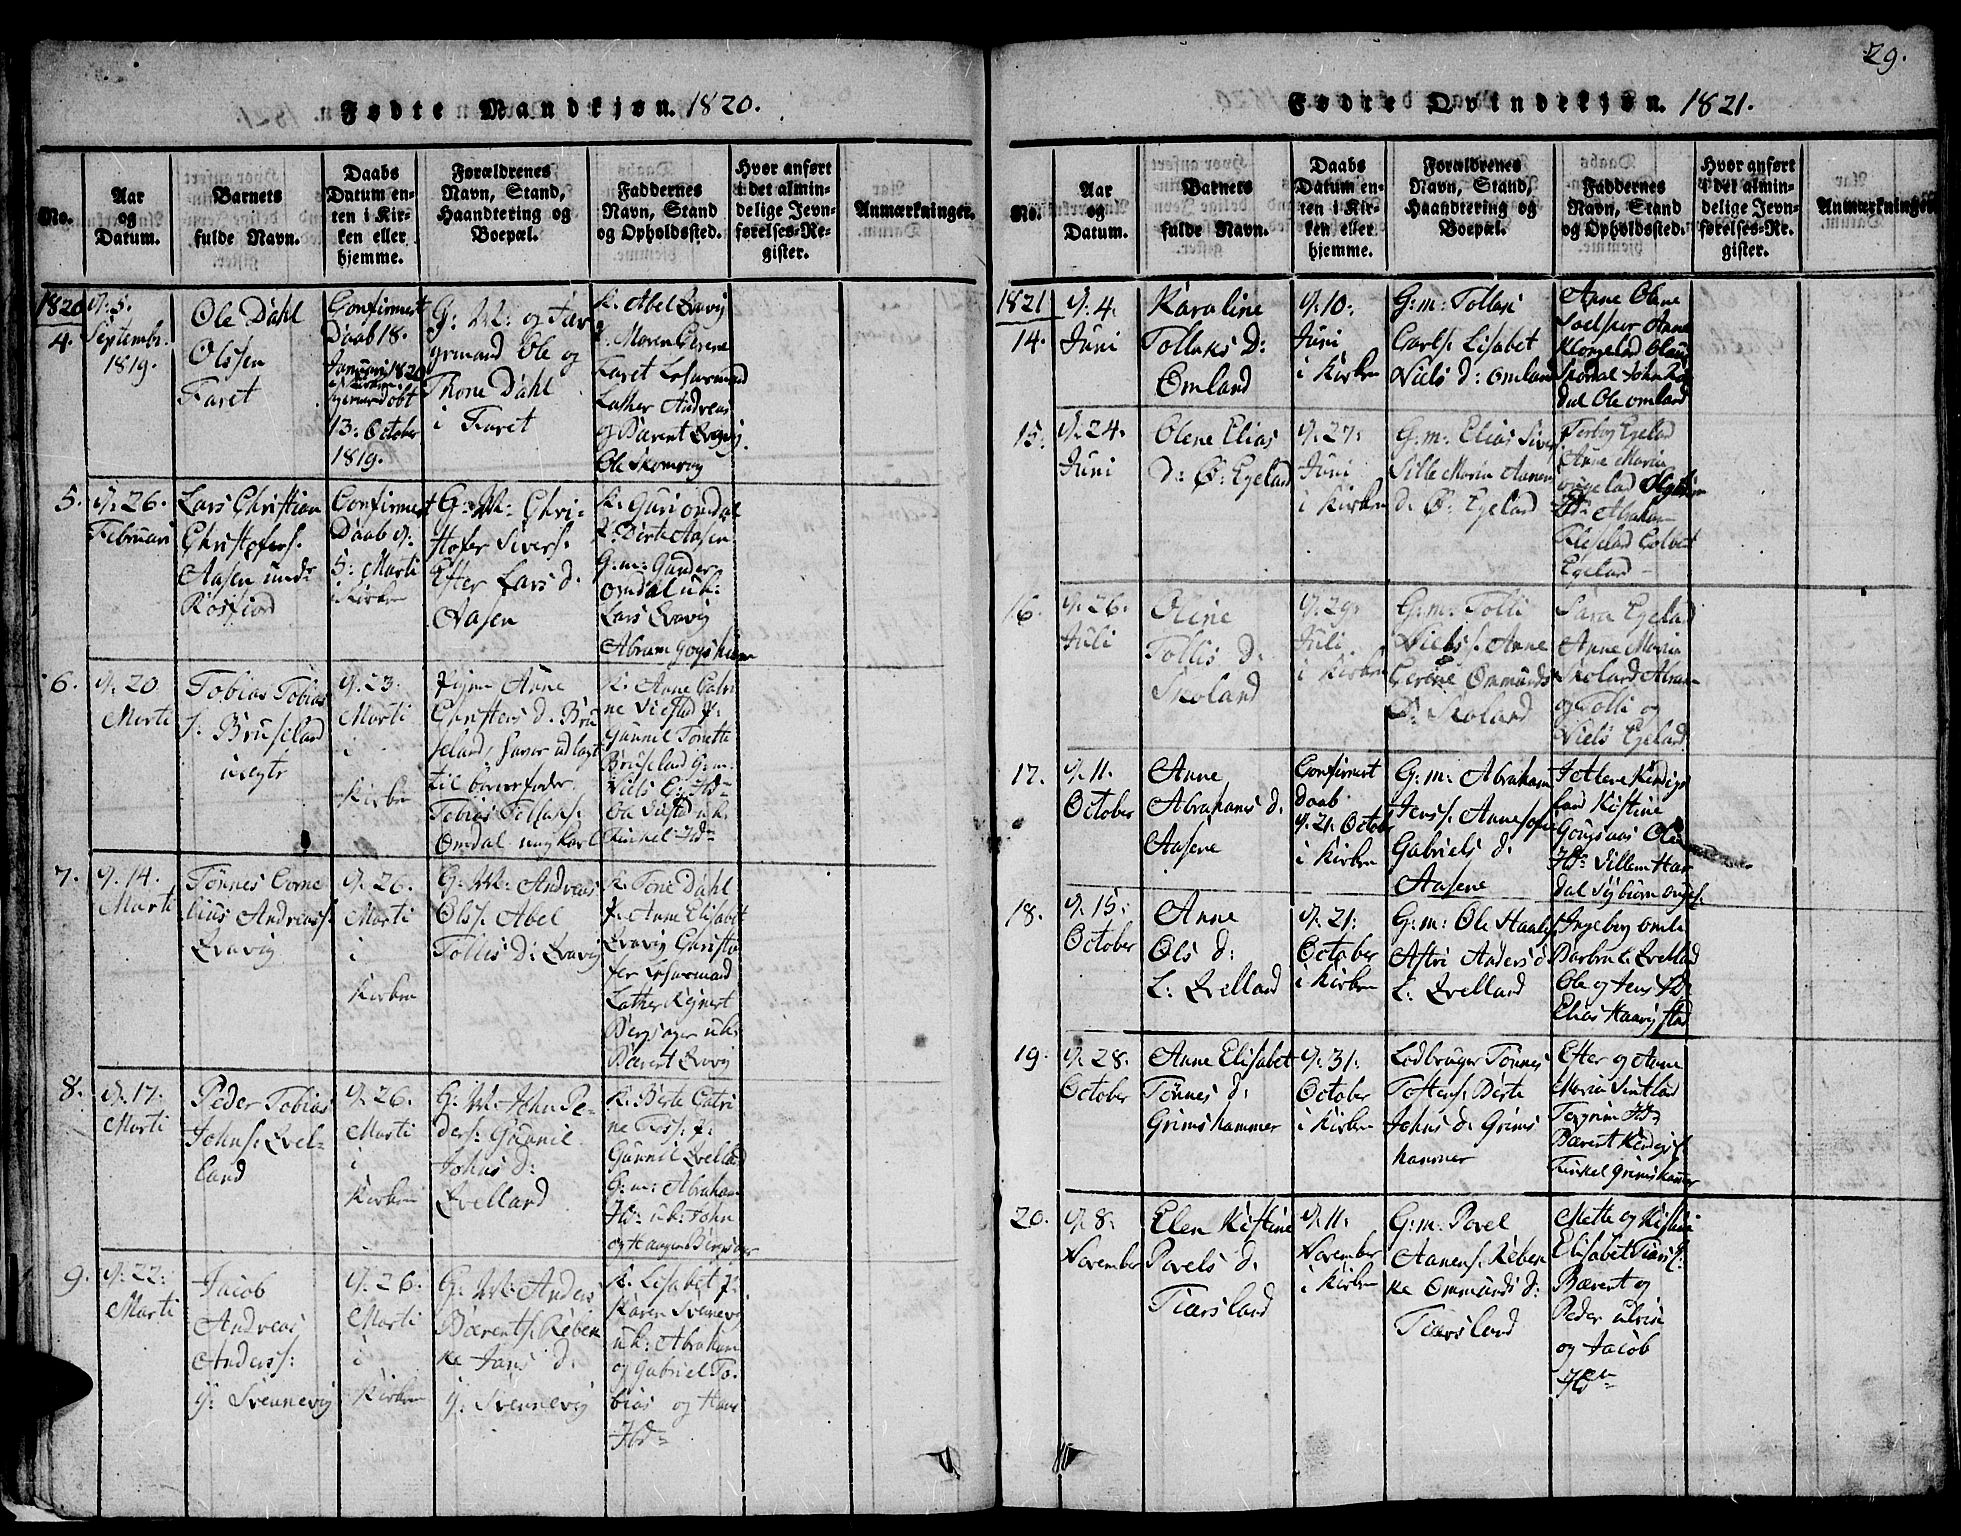 29.
Fødte Mandkjøn. 1820.
No.
Aar
og
Datum.
Barnets
fulde Navn.
Daabs
Datum en-
ten i Kir-
ken eller
hjemme.
Forældrenes
Navn, Stand,
Haandtering og
Boepæl.
Faddernes
Navn, Stand
og Opholdssted.
Hvor anført
i det almin-
delige Jevn-
førelses-Re-
gister.
Anmærkninger.
1820
4.
d. 5.
Septembr.
1819.
Ole Dahl
Olssen
Faret
Confirmert
Daab 18.
Januari 1820
i Kirken.
hjemmedøbt
13: October
1819.
G: M: og Far
Ole og
Thone Dahl
i Faret
K. Abel Qvavig
P. Maren
Faret
Lather Andreas
og Bærent Qvavig.
Ole Skomvog
5.
d. 26.
Februari
Lars Christian
Christofers.
Aasen und:
Rosfiord
Confirmert
Daab d.
5: Marti
i Kirken
G: M: Chri-
stofer Sivers.
Ester Lars d.
Aasen
K. Guri Omdal
P. Birte Aasen
G: m: Gunder
Omdal uk:
Lars Qvavig
Abram
6.
d. 20
Marti
Tobias Tobias
s. Bruseland
uegte
d. 23.
Marti
i
Kirken
Pigen Anne
Christens d. Bru
seland, havor udlagt
til barnefader
Tobias Tollaks.
Omdal ungkarl
K. Anne Catri
ne Viestad P.
Gunnil Tonette
Bruseland G: m:
Niels E: Ibd:
Ole Viestad u k.
Tinkel Ibd:
7.
d. 14.
Marti
Tønnes Corne
lius Andreass.
Qvavig
d. 26.
Marti
i
Kirken
G: M: Andreas
Olss. Abel
Tollis D: Qvavig
K. Tone Dahl
P. Anne Elisabet
Qvavig Christo
fer
Lather Reinert
Bergsager u k:
Bærent Qvavig
8.
d. 17.
Marti
Peder Tobias
Johns. Qvel-
land
d. 26.
Marti
i
Kirken
G: M: John Pe-
ders: Gunnil
Johns d:
Qvelland
K. Berte Catri
ne P:
Gunnil Qvelland
G: m: Abraham
Ibd: u k: John
og Haagen Bergsager
9.
d. 22:
Marti
Jacob
Andreas
Anderss:
Y: Svennevig
d. 26.
Marti
i
Kirken
G: M: Anders
Bærents. Reben
ke Jans d.
Y: Svennevig
K. Lisabet P:
Karen Svennevig
u k: Abraham
og Gabriel To-
bias og Hans
Ibd:
Fødte Qvindekjøn. 1821.
No.
Aar
og
Datum.
Barnets
fulde Navn.
Daabs
Datum en-
ten i Kir-
ken eller
hjemme.
Forældrenes
Navn, Stand,
Haandtering og
Boepæl.
Faddernes
Navn, Stand
og Opholdssted.
Hvor anført
i det almin-
delige Jevn-
førelses-Re-
gister.
Anmærkninger.
1821
14.
d. 4.
Juni
Karaline
Tollaks D:
Omland
d. 10:
Juni
i Kirken
G: m: Tollaki
Carls. Lisabet
Niels d: Omland
Anne Olene
Anne
Olaus
Skordal John
dal Ole Omland
15.
d. 24.
Juni
Olene Elias
D: Ø: Egeland
d. 27:
Juni
i Kirken
G: m: Elias Siver
Sille Maria Aanen
d. Ø: Egeland
Egelad
Anne Maria
Ibd: Abraham
Egelad
16.
d. 26.
Juli
Oline
Tollis d.
Skoland
d. 29.
Juli
i Kirken
G: m: Tolli
Niels s. Anne
Gerine Ommunds
D: Skoland
Sara Egelad
Anne Maria
Skoland Abram
og Tolli og
Niels Egeland
17.
d. 11.
October
Anne
Abrahams d.
Aasene
Confirmert
daab
d. 21: October
i Kirken
G: m: Abraham
Jenss. Anne Sofie
Gabriels d.
Aasene
Kistine
Ole
Ibd: Villem Har
dal Sigbiørn
18.
d. 15:
October
Anne
Ols d:
L: Qvelland
d. 21:
October
i Kirken
G: m: Ole
Astri Anders d
L: Qvelland
Ingeborg Omla
Barbra L. Qvelland
Ole og Jens Ibd:
Elias Haavigstad
19.
d. 28.
October
Anne Elisabet
Tønnes d:
Grimshammer
d. 31:
October
i Kirken
Lodbruger Tønnes
Tostens. Berte
Johns d. Grims
hammer
Ester og Anne
Maria
Ibd:
Bærent
Tinkel Grimshammer
20.
d. 8.
November
Elen Kistine
Povels d.
Tiørsland
d. 11.
November
i Kirken
G: m: Povel
Aanens. Reben
ke Ommunds d:
Tiørsland
Mette og Kistine
Elisabet
Bærent og
Peder ulrik
og Jacob
Ibd: